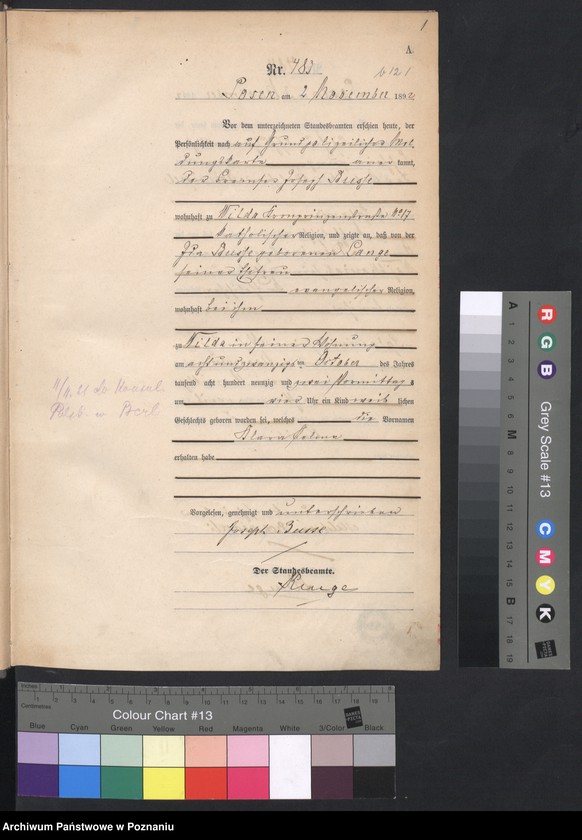 1
A.
Nr. 783
Posen am 2 November 1892
Vor dem unterzeichneten Standesbeamten erschien heute, der
Persönlichkeit nach auf Grund polizeilicher Mel
dungskarte aner kannt,
Joseph Busse
wohnhaft zu Wilda Kronprinzenstraße No 17
katholischer Religion, und zeigte an, daß von der
Ida Busse geborenen Lange
seiner Ehefrau
evangelischer Religion,
wohnhaft bei ihm
zu Wilda in seiner Wohnung
am achtundzwanzigsten October des Jahres
tausend acht hundert neunzig und zwei Vormittags
um vier Uhr ein Kind weib lichen
Geschlechts geboren worden sei, welches die Vornamen
Klara Helene
erhalten habe
Vorgelesen, genehmigt und unterschrieben
Joseph Busse
Der Standesbeamte.
Inches
Centimetres
Colour Chart #13
Blue Cyan Green Yellow Red Magenta White 3/Color Black
R G B
Grey Scale #13
C M Y K
A 1 2 3 4 5 6 M 8 9 10 11 12 13 14 15 B 17 18 19
Archiwum Państwowe w Poznaniu